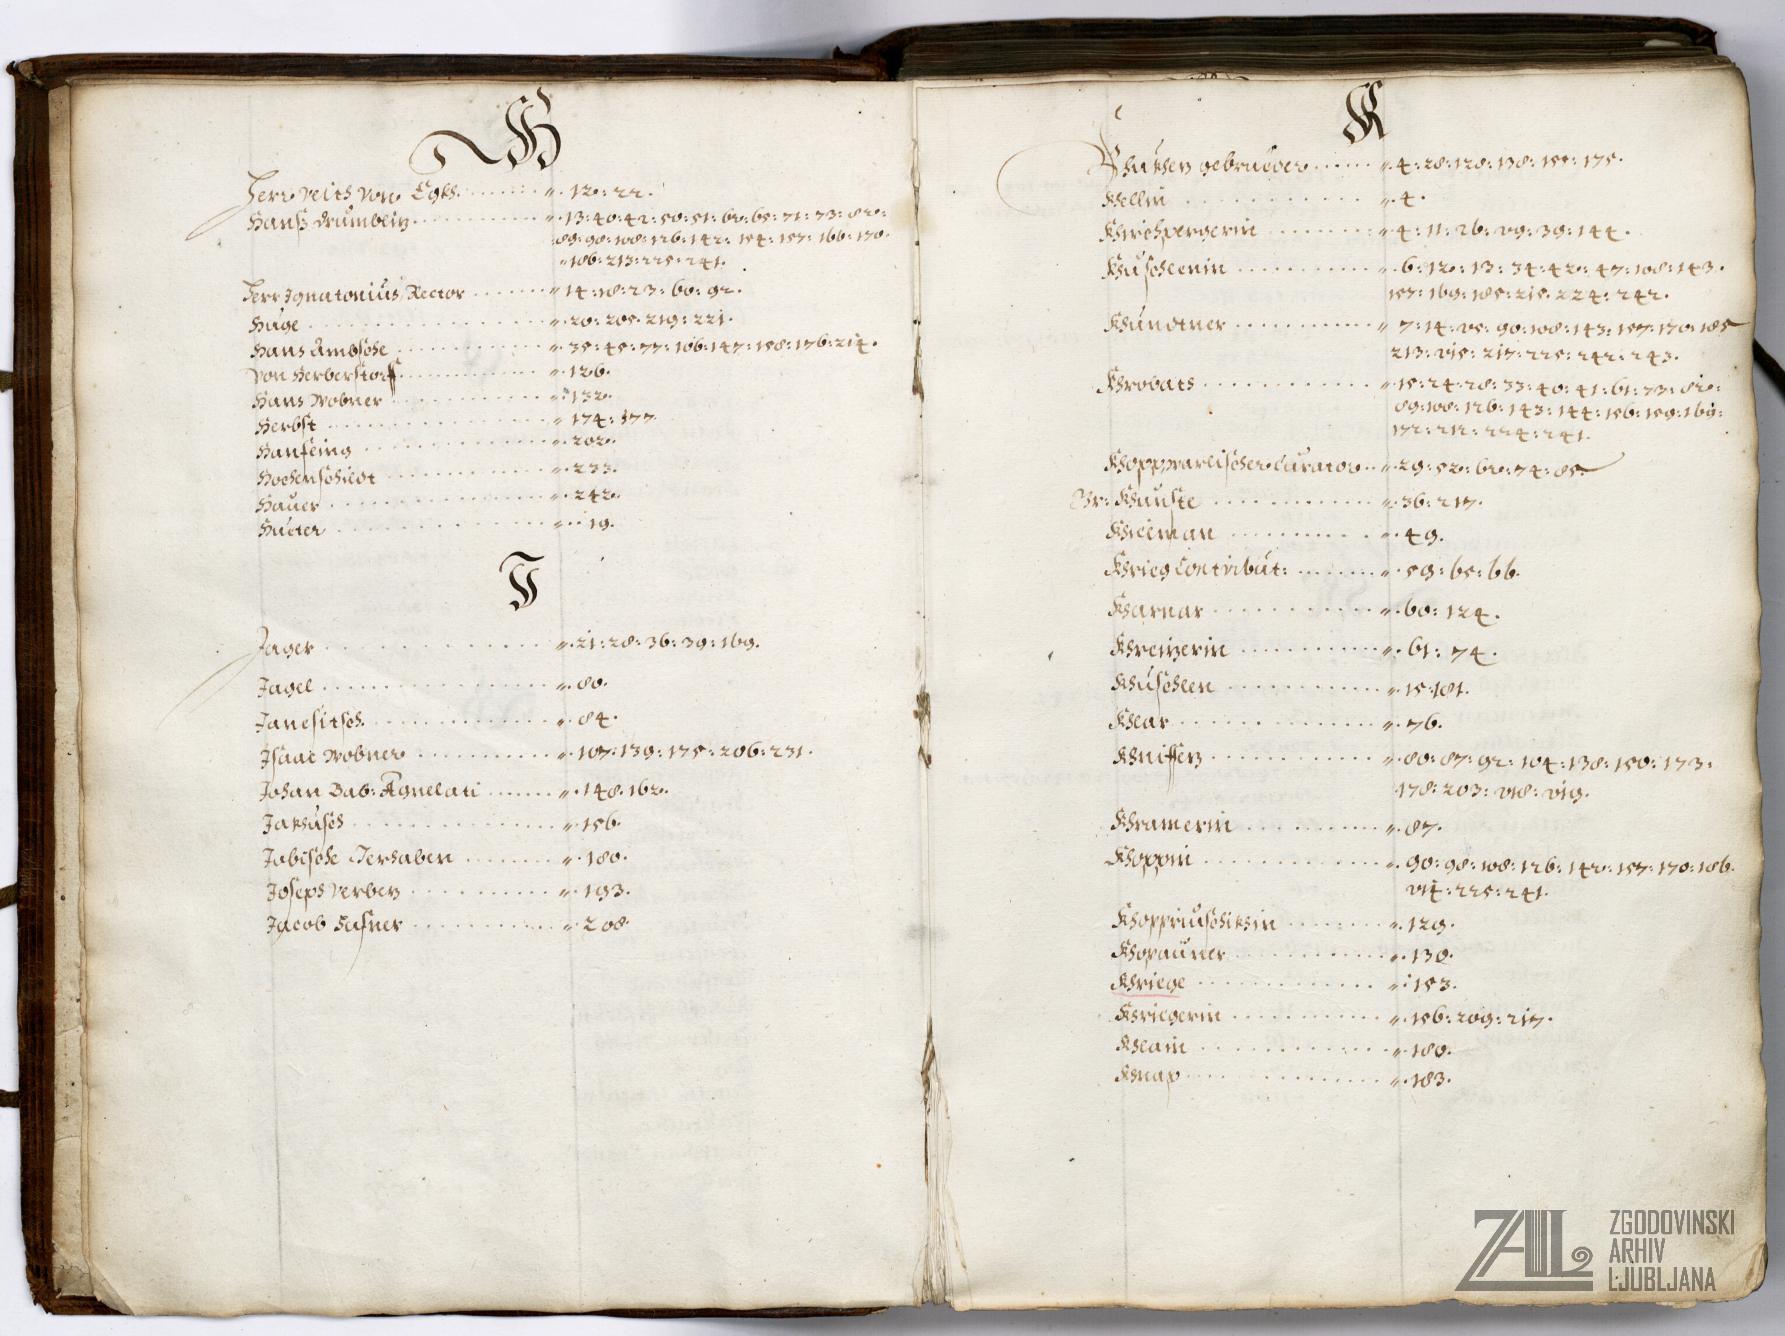 H
Herr Veith Von Egkh ....... „ 12: 22.
Hanß Drumbliz ....... „ 13: 40: 42: 50: 51: 62: 65: 71: 73: 82:
89: 98: 108: 126: 142: 154: 157: 166: 170:
„ 186: 213: 225: 241.
Herr Ignatonius Rector ....... „ 14: 18: 23: 60: 92.
Huge ....... „ 20: 205: 219: 221.
Hans Ambsche ....... „ 35: 45: 77: 106: 147: 158: 176: 214.
Von Herberstorff ....... „ 126.
Hans Wobner ....... „ 132.
Herbst ....... „ 174: 177
Hanseing ....... „ 202.
Hochenschiedt ....... „ 233.
Hauer ....... „ 242.
Hueter ....... „ 19.
I
Jager ....... „ 21: 28: 36: 39: 169.
Jagel ....... „ 80.
Janesitsch ....... „ 84.
Isaac Wobner ....... „ 107: 139: 175: 206: 231.
Johan Bab: Agnelati ....... „ 148: 162.
Jakhusch ....... „ 156.
Jobische Jerhaben ....... „ 180.
Joseph Verbez ....... „ 193.
Jacob Hafner ....... „ 208.
K
Khukhez gebrueder ....... „ 4: 28: 128: 138: 155: 175.
Khellin ....... „ 4.
Khirchpergerin ....... „ 4: 11: 26: 29: 39: 144.
Khuschlenin ....... „ 6: 12: 13: 34: 42: 47: 108: 143.
157: 169: 185: 215: 224: 242.
Khundtner ....... „ 7: 14: 25: 90: 108: 143: 157: 170: 185
213: 215: 217: 225: 242: 243.
Khrobats ....... „ 15: 24: 28: 33: 40: 41: 61: 73: 82:
89: 108: 126: 143: 144: 156: 159: 169:
172: 212: 224: 241.
Khoppvarlischer Curator .. „ 29: 52: 62: 74: 85.
Br: Khauste ....... „ 36: 217.
Khleman ....... „ 49.
Khrieg Contribut: ....... „ 59: 65: 66.
Kharnar ....... „ 60: 124.
Khreizerin ....... „ 61: 74.
Khuschlen ....... „ 15: 181.
Khlar ....... „ 76.
Khniffez ....... „ 80: 87: 92: 104: 138: 150: 173:
178: 203: 218: 219.
Khramerin ....... „ 87.
Khoppin ....... „ 90: 98: 108: 126: 142: 157: 170: 186.
214: 225: 241.
Khoppriuschikhin ....... „ 129.
Khopauner ....... „ 130.
Khriege ....... „ 153.
Khriegerin ....... „ 156: 209: 217.
Khlain ....... „ 180.
Khnap ....... „ 183.
ZAL
ZGODOVINSKI
ARHIV
LJUBLJANA